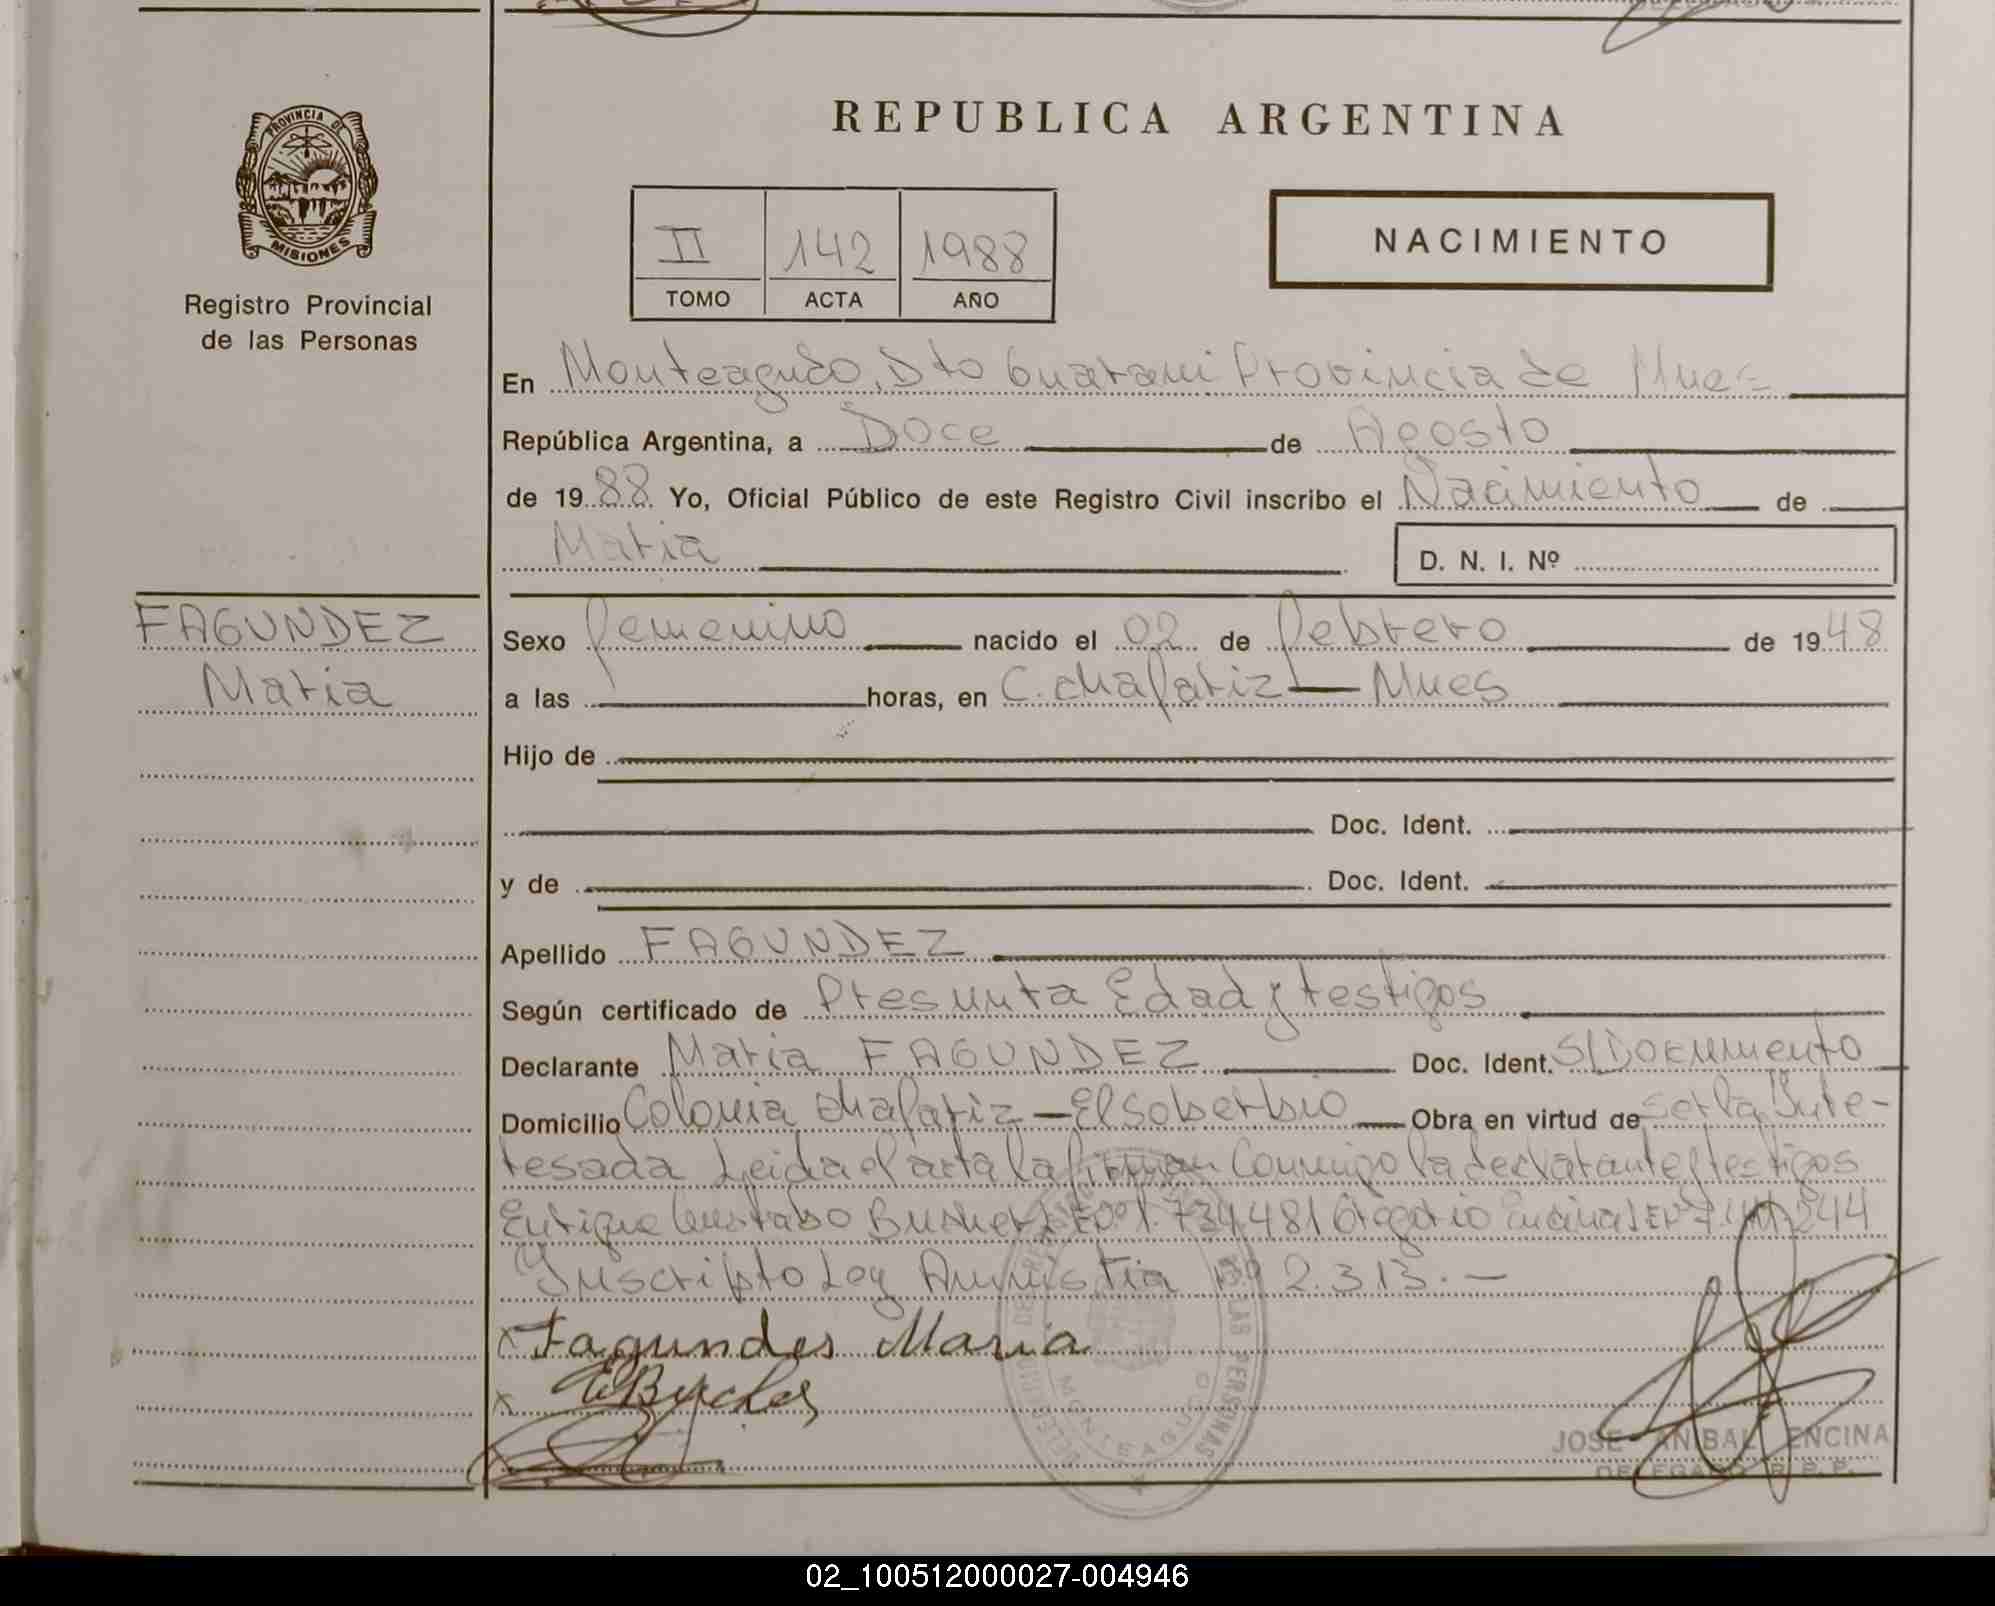 PROVINCIA DE
MISIONES
Registro Provincial
de las Personas
REPUBLICA ARGENTINA
II 142 1988
TOMO ACTA AÑO
NACIMIENTO
En Monteagudo, Dto Guarani Provincia de Mnes
República Argentina, a Doce de Agosto
de 1988 Yo, Oficial Público de este Registro Civil inscribo el Nacimiento de
Maria D. N. I. Nº
FAGUNDEZ
Maria
Sexo femenino nacido el 02 de febrero de 1948
a las horas, en C. chafariz — Mnes
Hijo de
Doc. Ident.
y de Doc. Ident.
Apellido FAGUNDEZ
Según certificado de Presunta Edad y testigos
Declarante Maria FAGUNDEZ Doc. Ident. S/Documento
Domicilio Colonia chafariz — El Soberbio Obra en virtud de ser la Inte-
resada Leida el acta la firman Conmigo la declarante y testigos
Enrique Gustabo 1.734.481 Gregorio Encina 244
Inscripto Ley Amnistia nº 2.313.—
x Fagundes Maria
x
MONTEAGUDO
JOSE ANIBAL ENCINA
DELEGADO R. P. P.
02_100512000027-004946